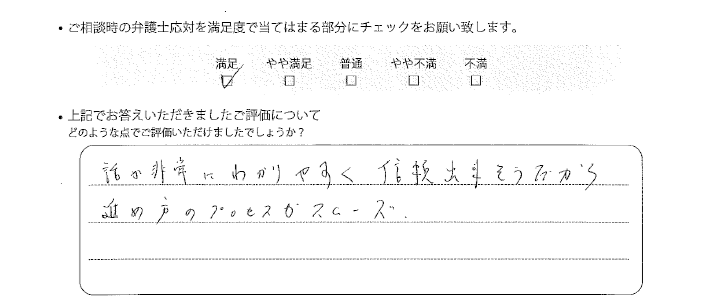 ・ご相談時の弁護士応対を満足度で当てはまる部分にチェックをお願い致します。
満足 やや満足 普通 やや不満 不満
☑ □ □ □ □
・上記でお答えいただきましたご評価について
どのような点でご評価いただけましたでしょうか？
話が非常にわかりやすく信頼出来そうだから
進め方のプロセスがスムーズ.